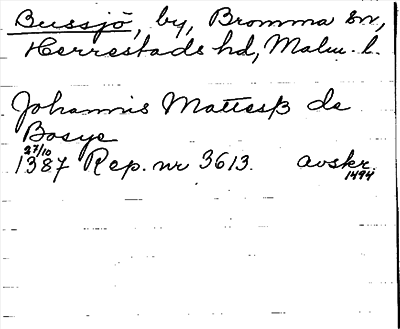 Bussjö, by, Bromma sn,
Herrestads hd, Malm. l.
Johannis Mattesß de
Bosye
27/10
1387 Rep. nr 3613. avskr.
1494